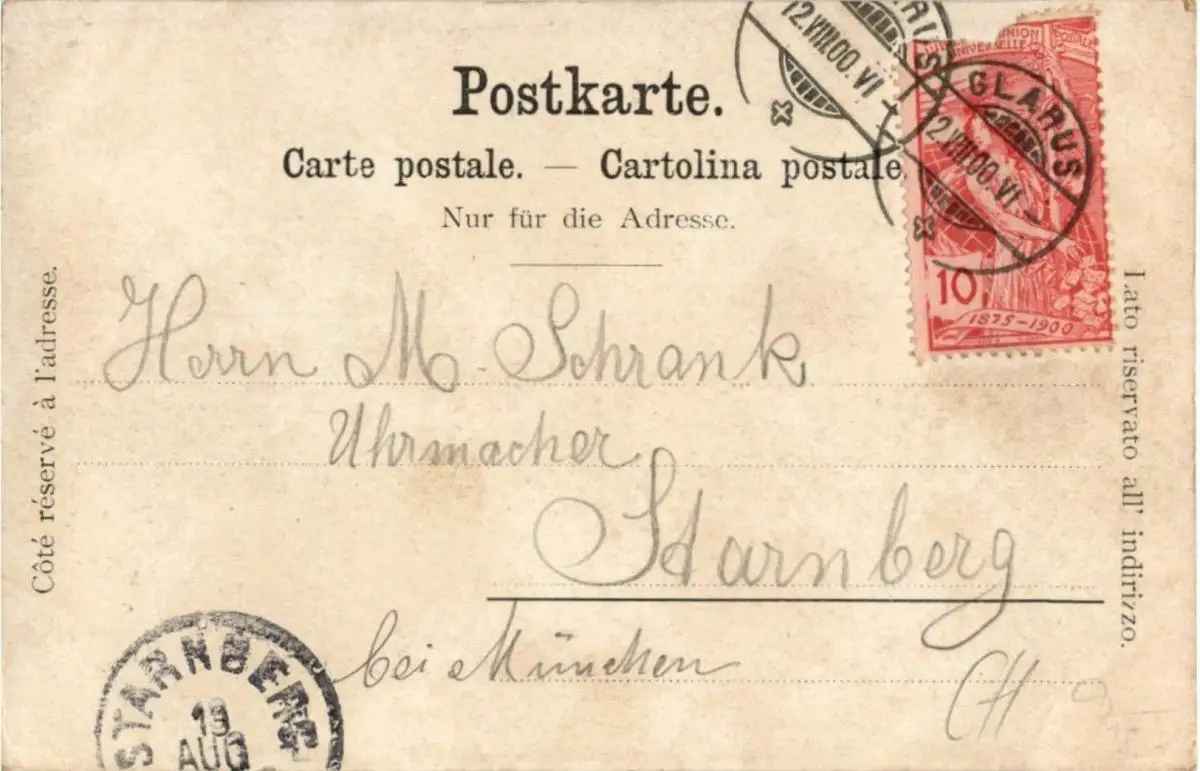 Postkarte.
Carte postale. — Cartolina postale.
Nur für die Adresse.
Côté réservé à l'adresse.
Lato riservato all' indirizzo.
12.VIII.00.VI –
GLARUS
12.VIII.00.VI –
UNION POSTALE
UNIVERSELLE
10
1875–1900
Herrn M. Schrank
Uhrmacher
Starnberg
bei München
CH
STARNBERG
13
AUG